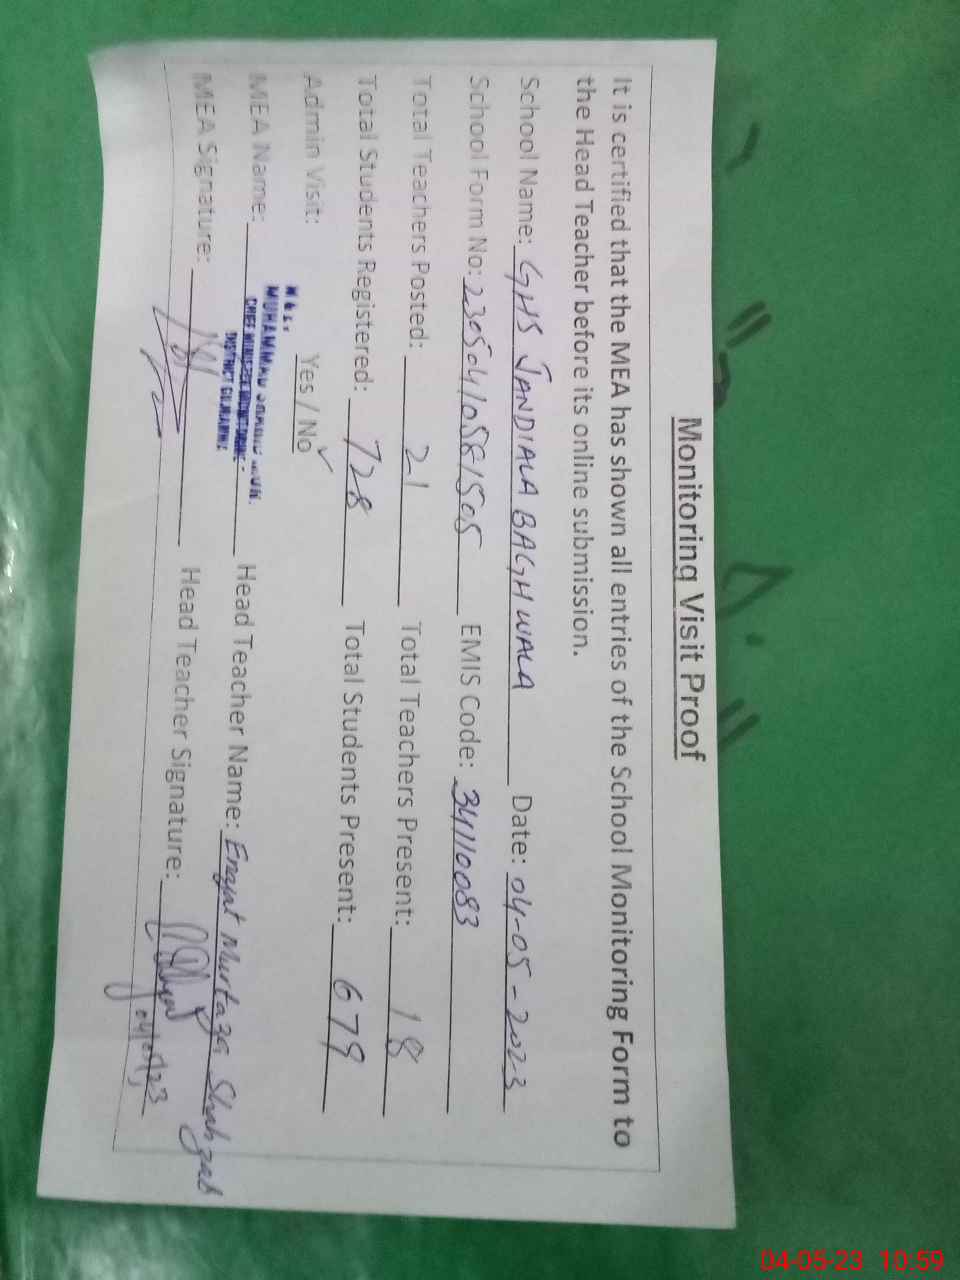 Monitoring Visit Proof
It is certified that the MEA has shown all entries of the School Monitoring Form to
the Head Teacher before its online submission.
School Name: GHS JANDIALA BAGHWALA Date: 04-05-2023
School Form No: 23050410581505 EMIS Code: 34110083
Total Teachers Posted: 21 Total Teachers Present: 18
Total Students Registered: 728 Total Students Present: 679
Admin Visit: Yes / No ✓
MEA Name: MUHAMMAD Head Teacher Name: Enayat Murtaza Shahzad
DISTRICT
MEA Signature: Head Teacher Signature:
04-05-23 10:59